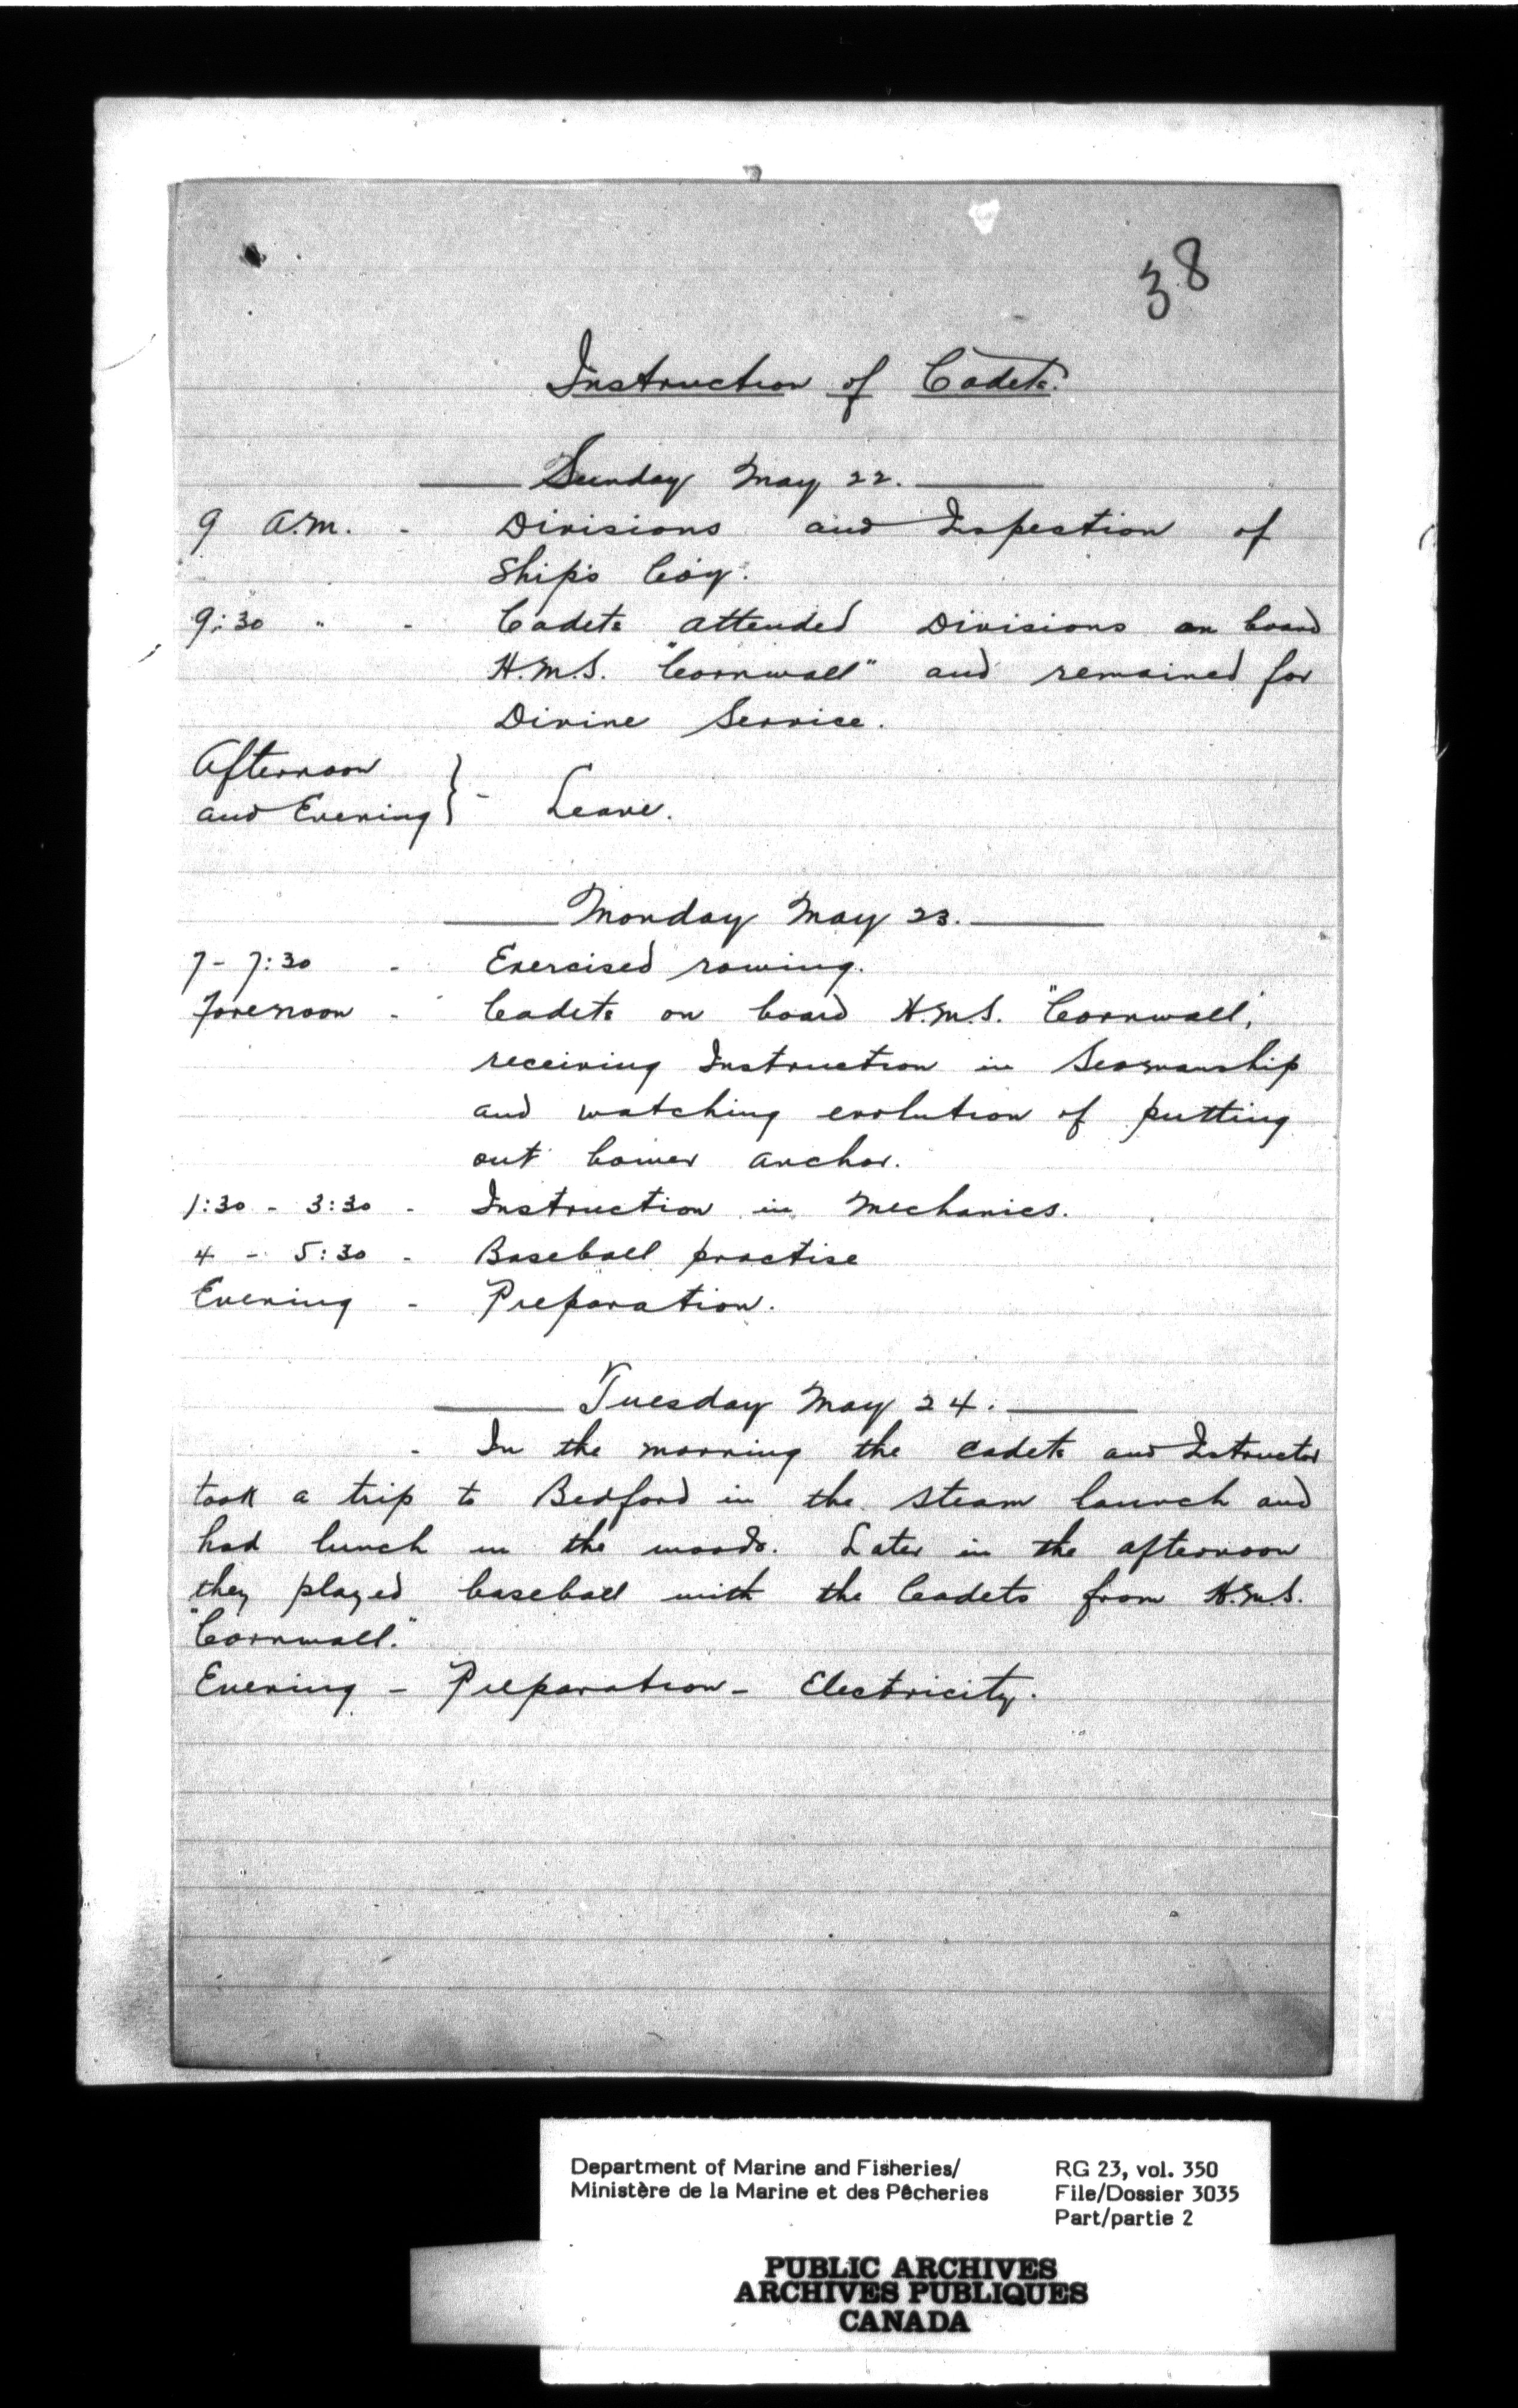 38
Instruction of Cadets.
Sunday May 22.
9 A.M. - Divisions and Inspection of
Ship's Coy.
9:30 " - Cadets attended Divisions on board
H.M.S. "Cornwall" and remained for
Divine Service.
Afternoon
and Evening } - Leave.
Monday May 23.
7 - 7:30 - Exercised rowing.
Forenoon - Cadets on board H.M.S. "Cornwall",
receiving Instruction in Seamanship
and watching evolution of putting
out bower anchor.
1:30 - 3:30 - Instruction in Mechanics.
4 - 5:30 - Baseball practise
Evening - Preparation.
Tuesday May 24.
- In the morning the cadets and Istructor
took a trip to Bedford in the steam launch and
had lunch in the woods. Later in the afternoon
they played baseball with the Cadets from H.M.S.
"Cornwall."
Evening - Preparation - Electricity.
Department of Marine and Fisheries/
Ministère de la Marine et des Pêcheries
RG 23, vol. 350
File/Dossier 3035
Part/partie 2
PUBLIC ARCHIVES
ARCHIVES PUBLIQUES
CANADA